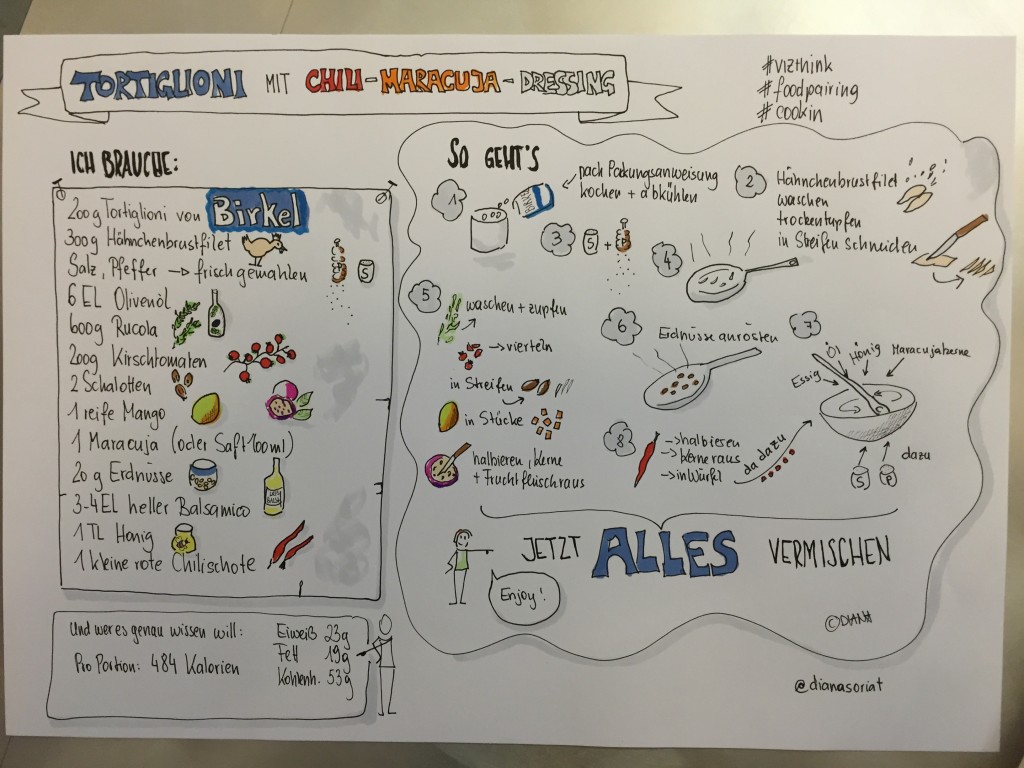 TORTIGLIONI MIT CHILI-MARACUJA-DRESSING
#vizthink
#foodpairing
#cookin
ICH BRAUCHE:
200g Tortiglioni von Birkel
300g Hähnchenbrustfilet
Salz, Pfeffer → frisch gemahlen
S
6 EL Olivenöl
600g Rucola
200g Kirschtomaten
2 Schalotten
1 reife Mango
1 Maracuja (oder Saft 100ml)
20g Erdnüsse
3-4 EL heller Balsamico
1 TL Honig
1 kleine rote Chilischote
Und wer es genau wissen will:
Pro Portion: 484 Kalorien
Eiweiß 23g
Fett 19g
Kohlenh. 53g
SO GEHT'S
1
nach Packungsanweisung
kochen + abkühlen
2
Hähnchenbrustfilet
waschen
trockentupfen
in Streifen schneiden
3
S +
4
5
waschen + zupfen
→ vierteln
in Streifen
in Stücke
halbieren, Kerne
+ Fruchtfleisch raus
6
Erdnüsse anrösten
7
Essig
Öl
Honig
Maracujakerne
dazu
S P
8
→ halbieren
→ Kerne raus
→ in Würfel
da dazu
JETZT ALLES VERMISCHEN
Enjoy!
©DIANA
@dianasoriat